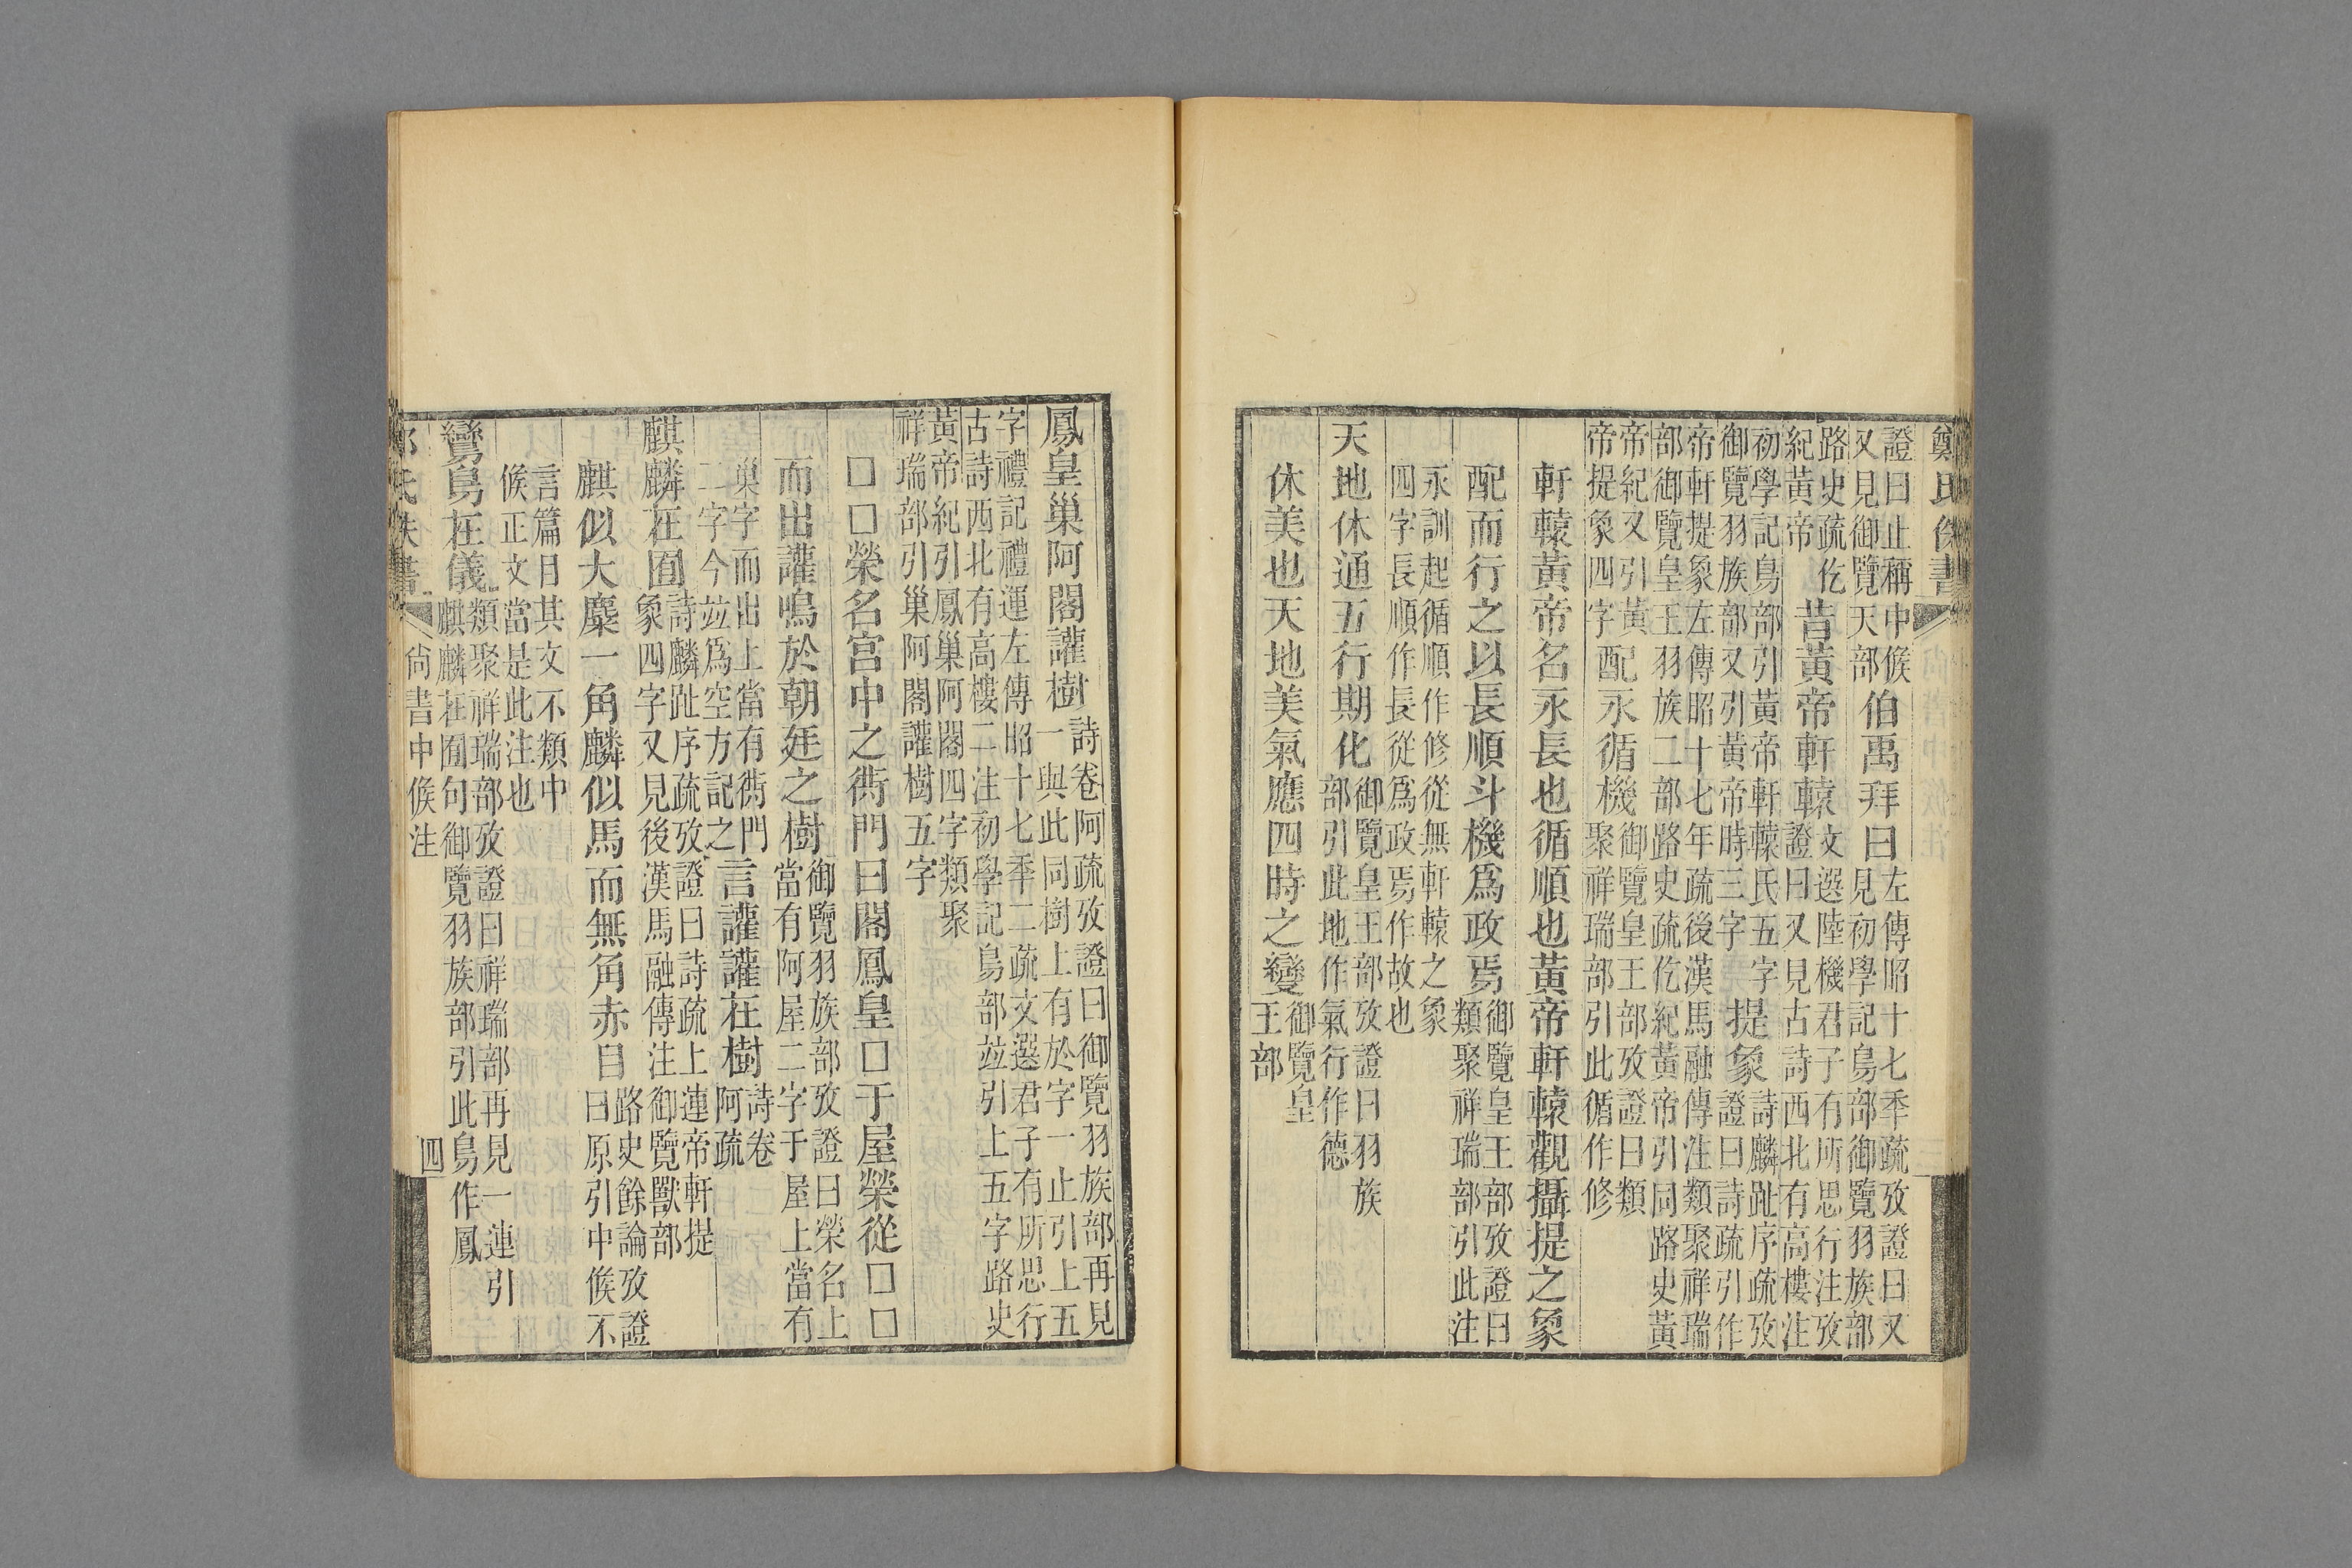 鄭氏佚書
證曰止稱中候
又見御覽天部
伯禹拜曰
左傳昭十七年疏攷證曰又
見初學記鳥部御覽羽族部
路史疏仡
紀黃帝
昔黃帝軒轅
文選陸機君子有所思行注攷
證曰又見古詩西北有高樓注
初學記鳥部引黃帝軒轅氏五字
御覽羽族部又引黃帝時三字
提象
詩麟趾序疏攷
證曰詩疏引作
帝軒提象左傳昭十七年疏後漢馬融傳注類聚祥瑞
部御覽皇王羽族二部路史疏仡紀黃帝引同路史黃
帝紀又引黃
帝提象四字
配永循機
御覽皇王部攷證曰類
聚祥瑞部引此循作修
軒轅黃帝名永長也循順也黃帝軒轅觀攝提之象
配而行之以長順斗機爲政焉
御覽皇王部攷證曰
類聚祥瑞部引此注
永訓起循順作修從無軒轅之象
四字長順作長從爲政焉作故也
天地休通五行期化
御覽皇王部攷證曰羽族
部引此地作氣行作德
休美也天地美氣應四時之變
御覽皇
王部
鳳皇巢阿閣讙樹
詩卷阿疏攷證曰御覽羽族部再見
一與此同樹上有於字一止引上五
字禮記禮運左傳昭十七年二疏文選君子有所思行
古詩西北有高樓二注初學記鳥部竝引上五字路史
黃帝紀引鳳巢阿閣四字類聚
祥瑞部引巢阿閣讙樹五字
□□榮名宮中之衖門曰閣鳳皇□于屋榮從□□
而出讙鳴於朝廷之樹
御覽羽族部攷證曰榮名上
當有阿屋二字于屋上當有
巢字而出上當有衖門
二字今竝爲空方記之
言讙讙在樹
詩卷
阿疏
麒麟在囿
詩麟趾序疏攷證曰詩疏上連帝軒提
象四字又見後漢馬融傳注御覽獸部
麒似大麋一角麟似馬而無角赤目
路史餘論攷證
曰原引中候不
言篇目其文不類中
候正文當是此注也
鸞鳥在儀
類聚祥瑞部攷證曰祥瑞部再見一連引
麒麟在囿句御覽羽族部引此鳥作鳳
氏佚書
尙書中候注
四